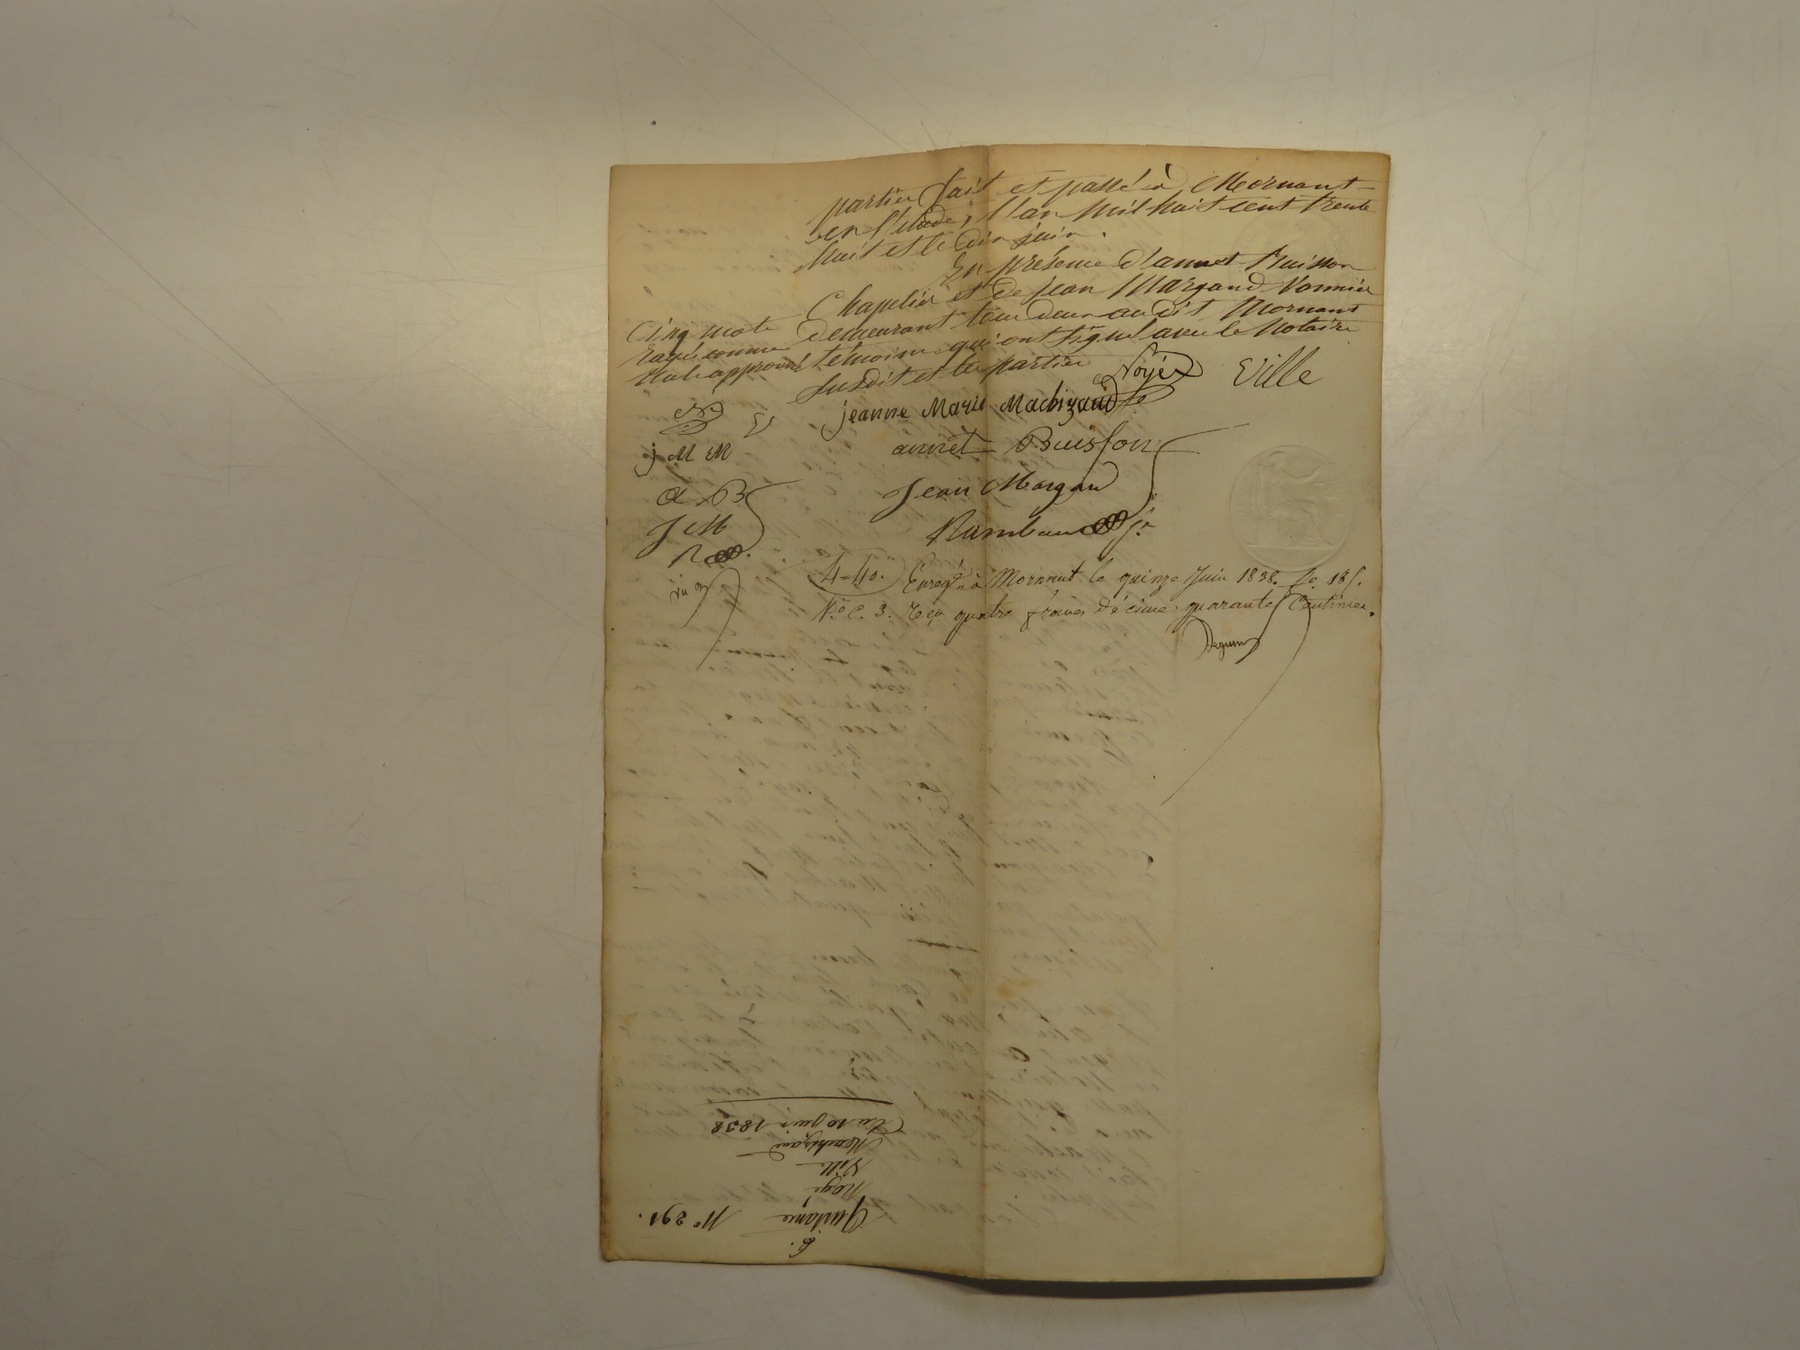 parties fait et passé à Mornant
en l'étude, l'an mil huit cent trente
huit et le dix juin.
En présence d'annet Buisson
Chapelier et de jean Margand Vannier
demeurant tous deux au dit Mornant
témoins qui ont signé avec le Notaire
susdit et les parties
Cinq mots
rayés comme
nuls approuvés
Noyé Ville
jeanne Marie Machizaud fe
j M M
annet Buisson
a B
Jean Margand
J M
Rambaud
R
4-40. Enregé à Mornant le quinze Juin 1838. fo. 185.
Vo. C. 3. Reçu quatre francs décime quarante Centimes.
6.
Quittance N° 291.
Noyé
Ville
Machizaud
Du 10 juin 1838